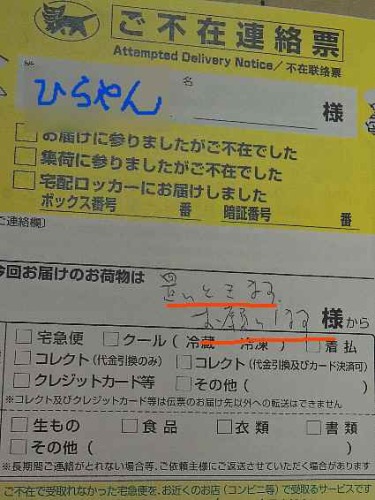 ご不在連絡票
Attempted Delivery Notice／不在联络票
名
ひらやん 様
□ お届けに参りましたがご不在でした
□ 集荷に参りましたがご不在でした
□ 宅配ロッカーにお届けしました
ボックス番号 番 暗証番号 番
ご連絡欄〕
今回お届けのお荷物は 置いときます。
お願いします 様から
□ 宅急便 □ クール（ 冷蔵 冷凍 ） □ 着払
□ コレクト（代金引換のみ） □ コレクト（代金引換及びカード決済可）
□ クレジットカード等 □ その他（ ）
※コレクト及びクレジットカード等は伝票のお届け先以外への転送はできません
□ 生もの □ 食品 □ 衣類 □ 書類
□ その他（ ）
※長期間ご連絡がとれない場合等、ご依頼主様にご返送させていただく場合があります
ご不在で受取れなかった宅急便を、お近くのお店（コンビニ等）で受取るサービスです